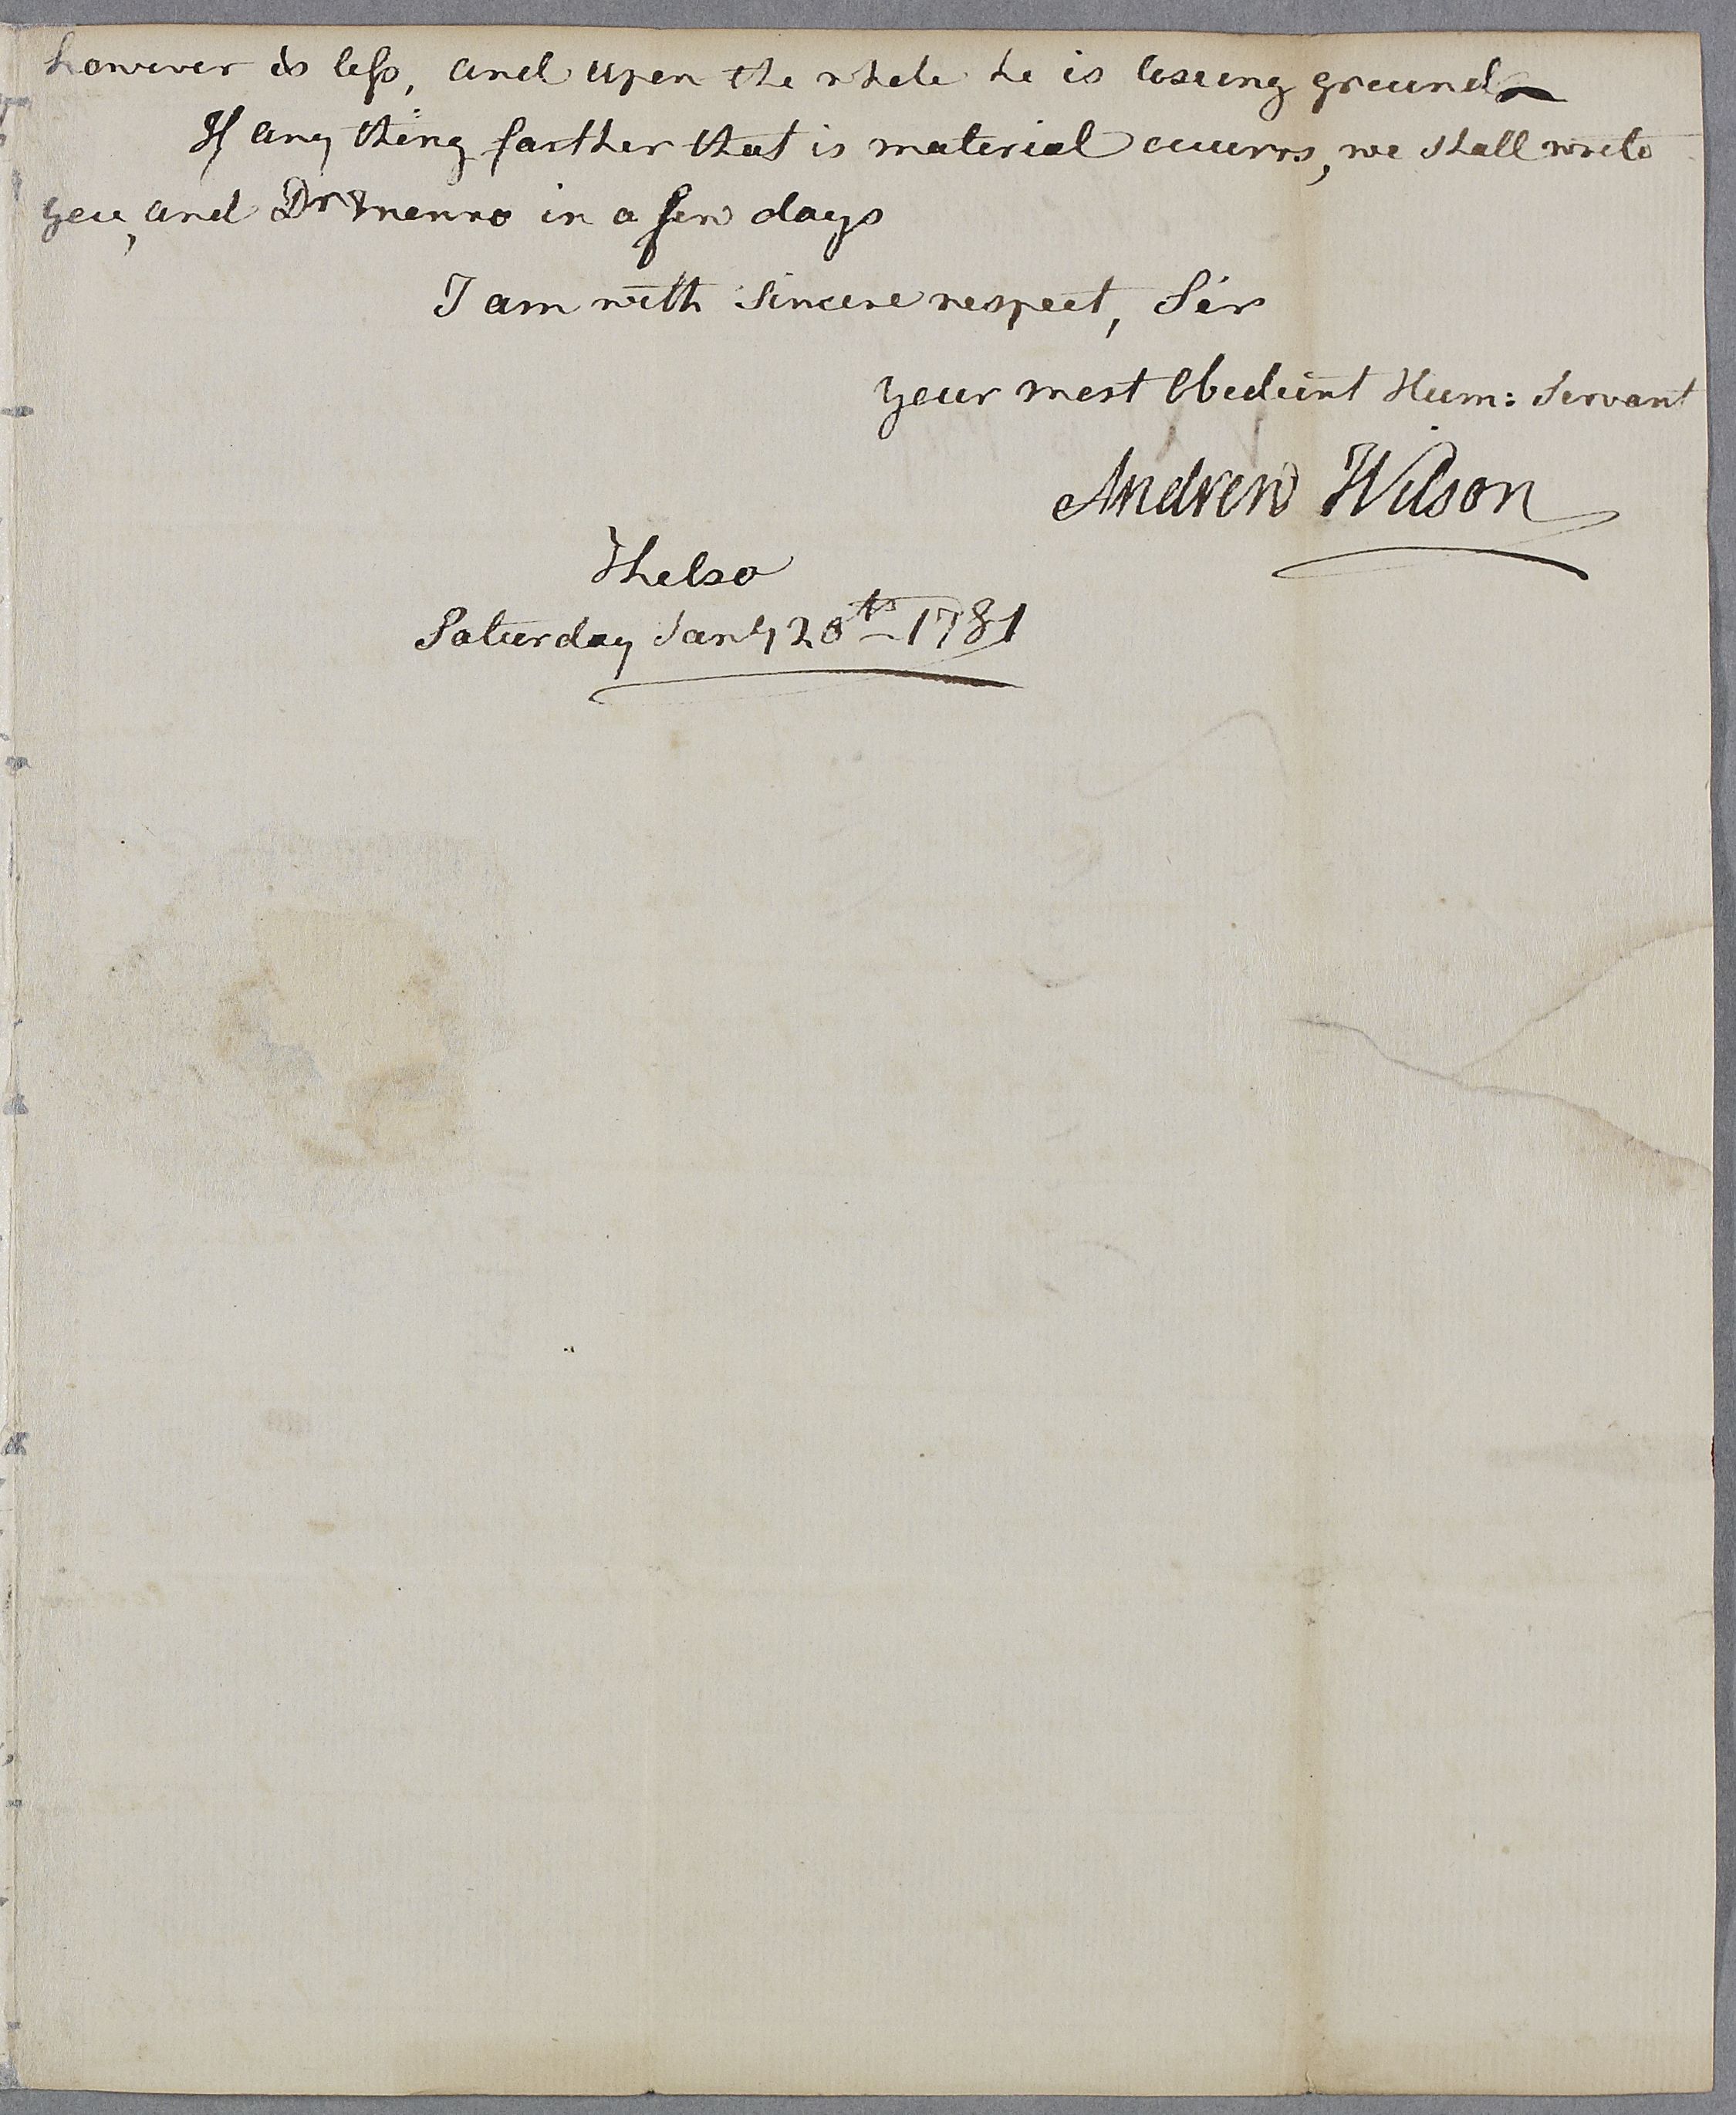 however is less, and upon the whole he is loseing ground
If any thing farther that is material occurrs, we shall write
you, and Dr Monro in a few days
I am with Sincere respect, Sir
your most Obedient Hum: Servant
Andrew Wilson
Kelso
Saturday Jany 20th 1781